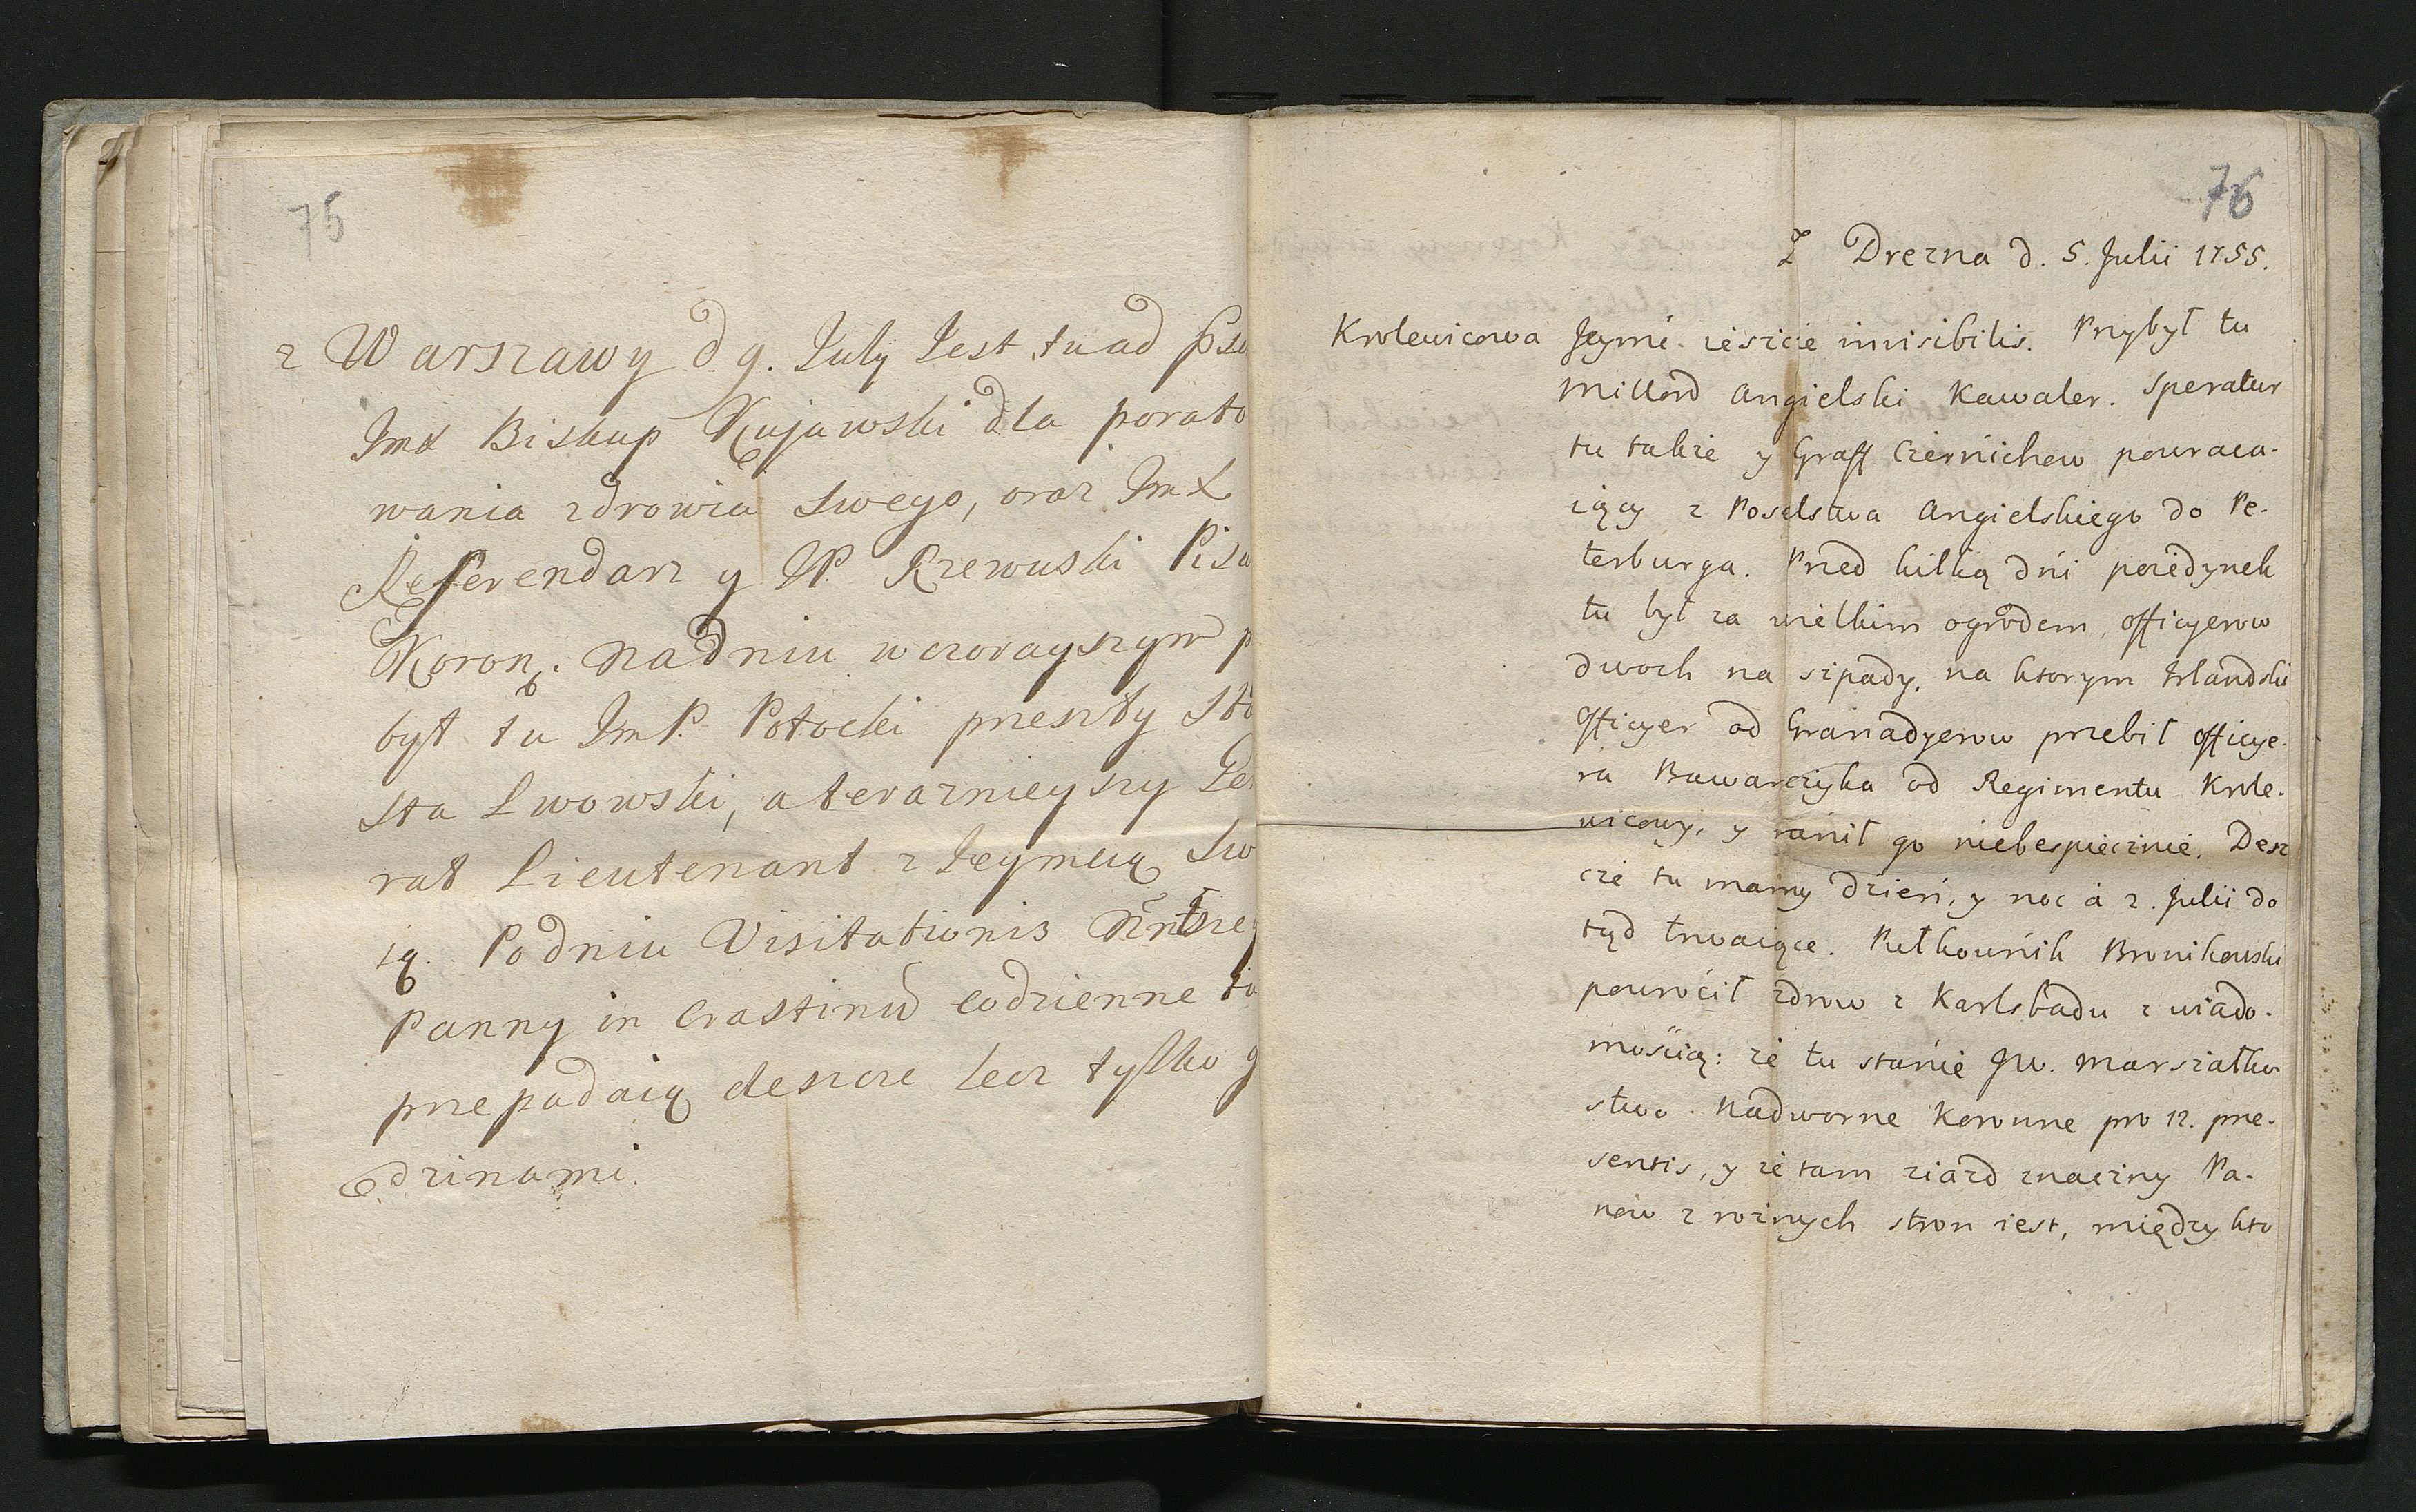 75
z Warszawy d 9. July Jest tu ad
Jmx Biskup Kujawski dla porato
wania zdrowia Swego, oraz JmX
Referendarz y JP. Rzewuski Pisa
Koron. Nadniu wczorayszym p
był tu JmP. Potocki przeszły Sta
sta Lwowski, a teraznieyszy Ge
rał Lieutenant z Jeymcią Sw
ią. Podniu Visitationis
Panny in Crastinũ codzienne tu
przepadaią deszcze lecz tylko g
odzinami.
76
Z Drezna d. 5. Julii 1755.
Krolewicowa Jeymć. ieszcze invisibilis. Przybył tu
Millord Angielski Kawaler. Speratur
tu także y Graff Czernichew powraca-
iący z Poselstwa Angielskiego do Pe-
terburga. Przed kilką dni poiedynek
tu był za wielkim ogrodem, officyerow
dwoch na szpady, na ktorym Irlandski
Officyer od Granadyerow przebił officye-
ra Bawarczyka od Regimentu Krole-
wicowy, y ranił go niebespiecznie. Desz
cze tu mamy dzień, y noc à 2. Julii do
tąd trwaiące. Pułkownik Bronikowski
powrócił zdrow z Karlsbadu z wiado-
mością: że tu stanie JW. Marszałko
stwo Nadworne Koronne pro 12. prae-
sentis, y że tam ziazd znaczny Pa-
now z roznych stron iest, między kto